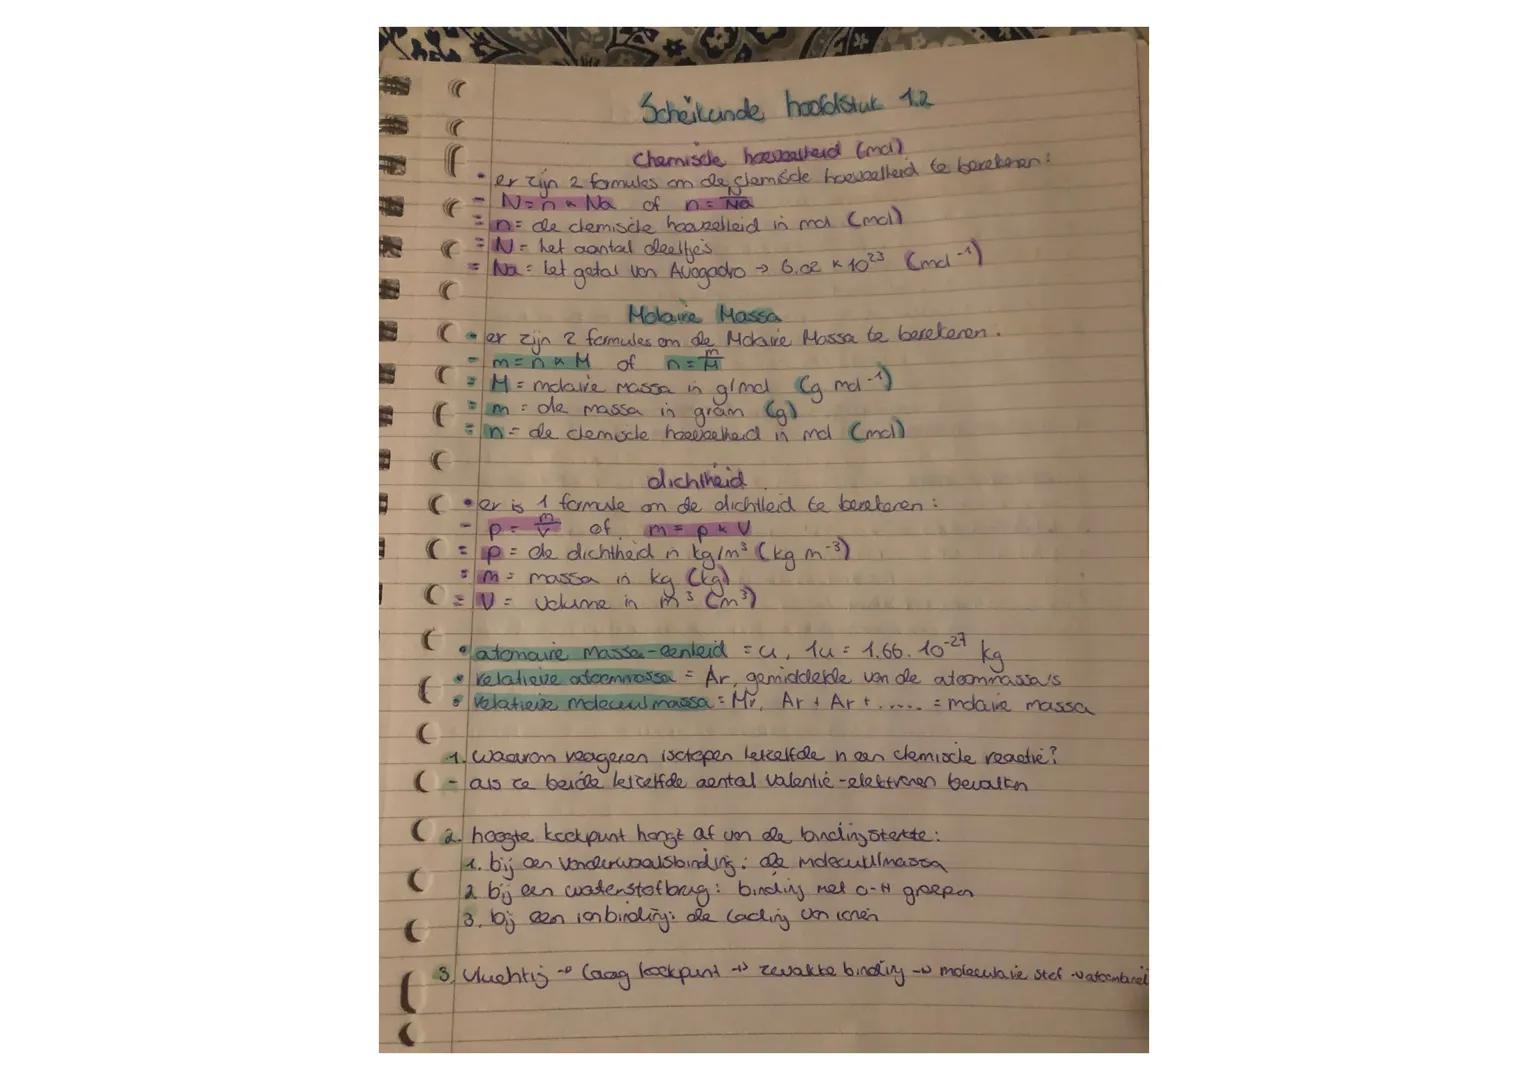 Scheikunde hoofdstuk 1.2
Chemische hoeveelheid (mol)
• er zijn 2 formules om de chemische hoeveelheid te berekenen:
- N = n × Na of n = N/Na
= n = de chemische hoeveelheid in mol (mol)
= N = het aantal deeltjes
= Na = het getal van Avogadro → 6.02 × 10²³ (mol⁻¹)
Molaire Massa
• er zijn 2 formules om de Molaire Massa te berekenen.
- m = n × M of n = m/M
= M = molaire massa in g/mol (g mol⁻¹)
= m = de massa in gram (g)
= n = de chemische hoeveelheid in mol (mol)
dichtheid
• er is 1 formule om de dichtheid te berekenen:
- p = m/V of m = p × V
= p = de dichtheid in kg/m³ (kg m⁻³)
= m = massa in kg (kg)
= V = volume in m³ (m³)
• atomaire massa-eenheid = u, 1u = 1.66.10⁻²⁷ kg
• relatieve atoommassa = Ar, gemiddelde van de atoommassa's
• relatieve molecuulmassa = Mr, Ar + Ar + ..... = molaire massa
1. waarom reageren isotopen hetzelfde in een chemische reactie?
- als ze beide hetzelfde aantal valentie-elektronen bevatten
2. hoogte kookpunt hangt af van de bindingsterkte:
1. bij een vanderwaalsbinding: de molecuulmassa
2 bij een waterstofbrug: binding met O-H groepen
3. bij een ionbinding: de lading van ionen
3. vluchtig → laag kookpunt → zwakke binding → moleculaire stof →